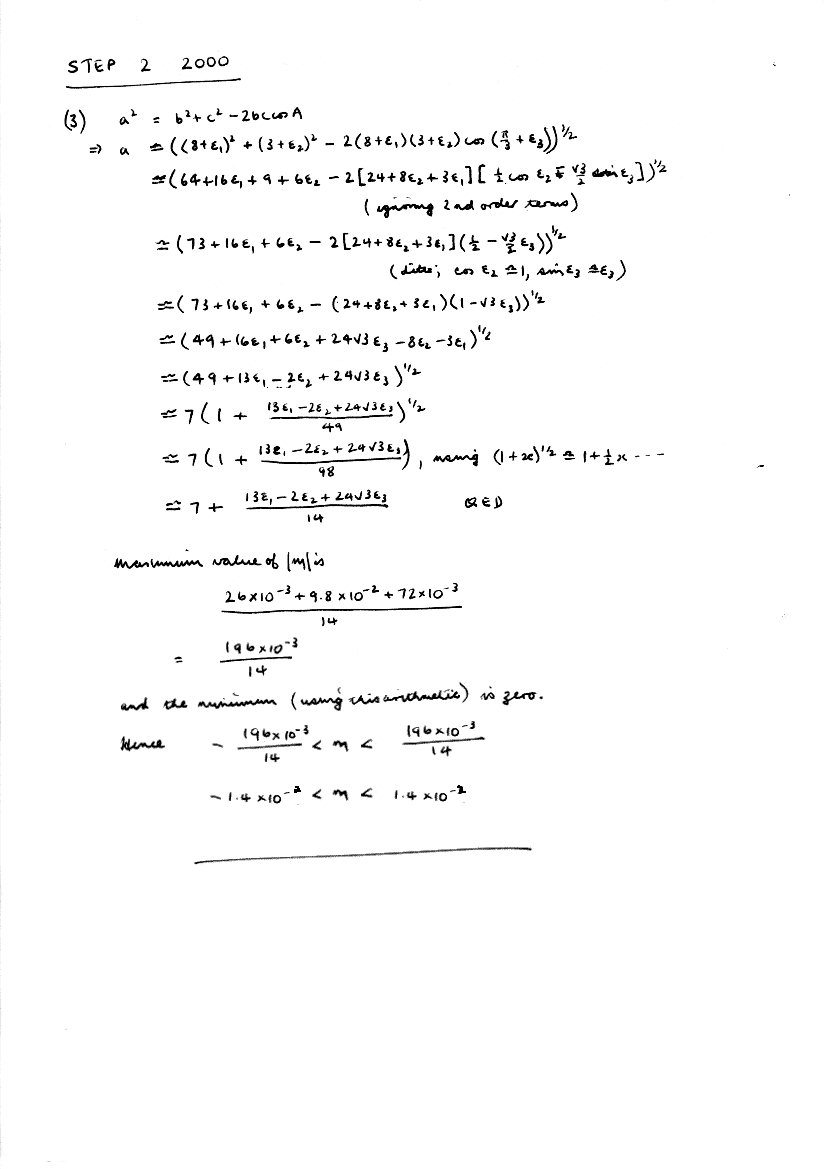 STEP 2 2000
(3) a² = b² + c² - 2bc cos A
⇒ a ≃ ((8+ε₁)² + (3+ε₂)² - 2(8+ε₁)(3+ε₂) cos (π/3 + ε₃))^1/2
≃ (64+16ε₁ + 9 + 6ε₂ - 2[24+8ε₂+3ε₁][½ cos ε₂ - √3/2 sin ε₃])^1/2
(ignoring 2nd order terms)
≃ (73 + 16ε₁ + 6ε₂ - 2[24+8ε₂+3ε₁](½ - √3/2 ε₃))^1/2
(ditto; cos ε₂ ≃ 1, sin ε₃ ≃ ε₃)
≃ (73 + 16ε₁ + 6ε₂ - (24+8ε₂+3ε₁)(1-√3ε₃))^1/2
≃ (49 + 16ε₁ + 6ε₂ + 24√3ε₃ - 8ε₂ - 3ε₁)^1/2
≃ (49 + 13ε₁ - 2ε₂ + 24√3ε₃)^1/2
≃ 7(1 + (13ε₁ - 2ε₂ + 24√3ε₃)/49)^1/2
≃ 7(1 + (13ε₁ - 2ε₂ + 24√3ε₃)/98), using (1+x)^1/2 ≃ 1 + ½x ---
≃ 7 + (13ε₁ - 2ε₂ + 24√3ε₃)/14 QED
Maximum value of |m| is
(26×10⁻³ + 9.8×10⁻² + 72×10⁻³)/14
= (196×10⁻³)/14
and the minimum (using this arithmetic) is zero.
Hence - (196×10⁻³)/14 < m < (196×10⁻³)/14
-1.4×10⁻² < m < 1.4×10⁻²